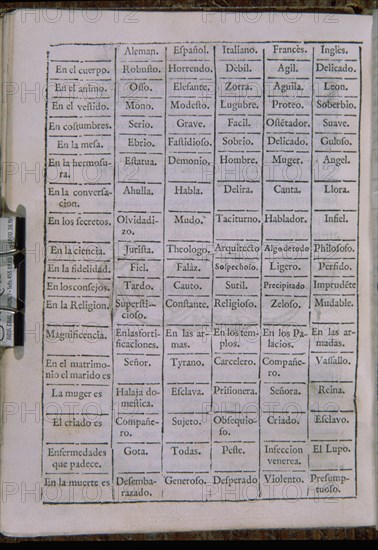 Aleman. Español. Italiano. Francès. Inglès.
En el cuerpo. Robusto. Horrendo. Dèbil. Agil. Delicado.
En el animo. Osso. Elefante. Zorra. Aguila. Leon.
En el vestido. Mono. Modesto. Lugubre. Proteo. Soberbio.
En costumbres. Serio. Grave. Facil. Ostẽtador. Suave.
En la mesa. Ebrio. Fastidioso. Sobrio. Delicado. Guloso.
En la hermosu- Estatua. Demonio. Hombre. Muger. Angel.
ra.
En la conversa- Ahulla. Habla. Delira. Canta. Llora.
cion.
En los secretos. Olvidadi- Mudo. Taciturno. Hablador. Infiel.
zo.
En la ciencia. Jurista. Theologo. Arquitecto Algo de todo Philosofo.
En la fidelidad. Fiel. Falàz. Sospechoso. Ligero. Perfido.
En los consejos. Tardo. Cauto. Sutil. Precipitado Imprudẽte
En la Religion. Supersti- Constante. Religioso. Zeloso. Mudable.
cioso.
Magnificencia. En las forti- En las ar- En los tem- En los Pa- En las ar-
ficaciones. mas. plos. lacios. madas.
En el matrimo- Señor. Tyrano. Carcelero. Compañe- Vassallo.
nio el marido es ro.
La muger es Halaja do- Esclava. Prisionera. Señora. Reina.
mestica.
El criado es Compañe- Sujeto. Obsequio- Criado. Esclavo.
ro. so.
Enfermedades Gota. Todas. Peste. Infeccion El Lupo.
que padece. venerea.
En la muerte es Desemba- Generoso. Desperado Violento. Presump-
razado. tuoso.
PHOTO12